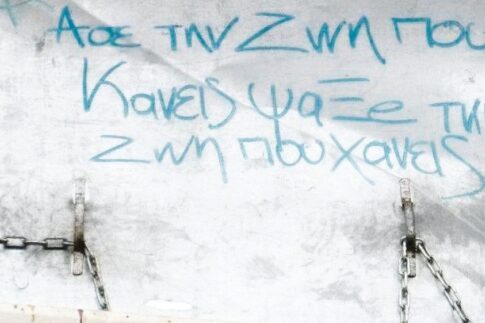 Ασε την Ζωη που
Κανεις ψαξε τη
Ζωη που χανεις